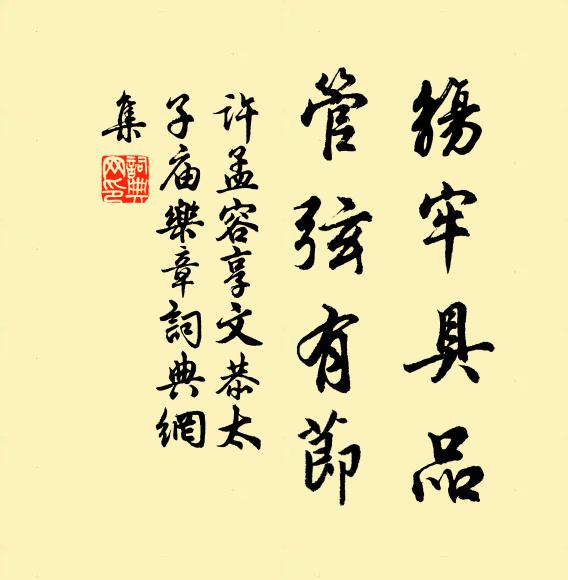 觴牢具品
管弦有節
許孟容享文恭太
子廟樂章詞典網
集
詞典
网印